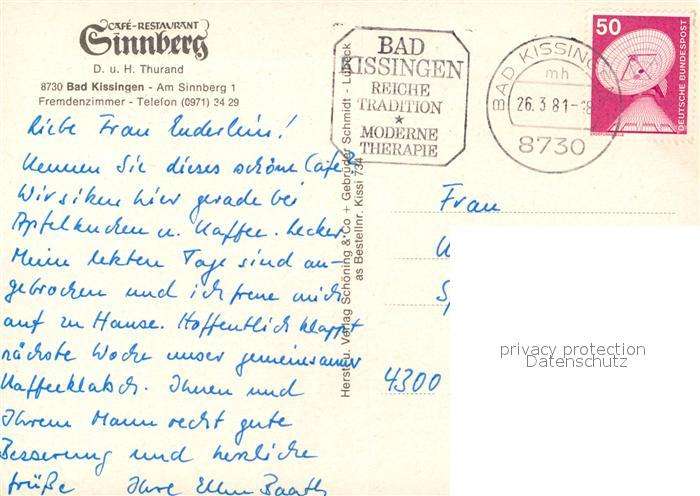 CAFÉ-RESTAURANT
Sinnberg
D. u. H. Thurand
8730 Bad Kissingen - Am Sinnberg 1
Fremdenzimmer - Telefon (0971) 24 29
Liebe Frau Enderlein!
Kennen Sie dieses schöne Café?
Wir sitzen hier gerade bei
Apfelkuchen u. Kaffee. Lecker
Meine letzten Tage sind an-
gebrochen und ich freue mich
auf zu Hause. Hoffentlich klappt
nächste Woche unser gemeinsamer
Kaffeeklatsch. Ihnen und
Ihrem Mann recht gute
Besserung und herzliche
Grüße Ihre Ellen
Herst. u. Verlag Schöning & Co + Gebrüder Schmidt - Lübeck
as Bestellnr. Kissi 734
BAD
KISSINGEN
REICHE
TRADITION
★
MODERNE
THERAPIE
BAD KISSINGEN
mh
26.3.81-18
8730
50
DEUTSCHE BUNDESPOST
Frau
4300
privacy protection
Datenschutz